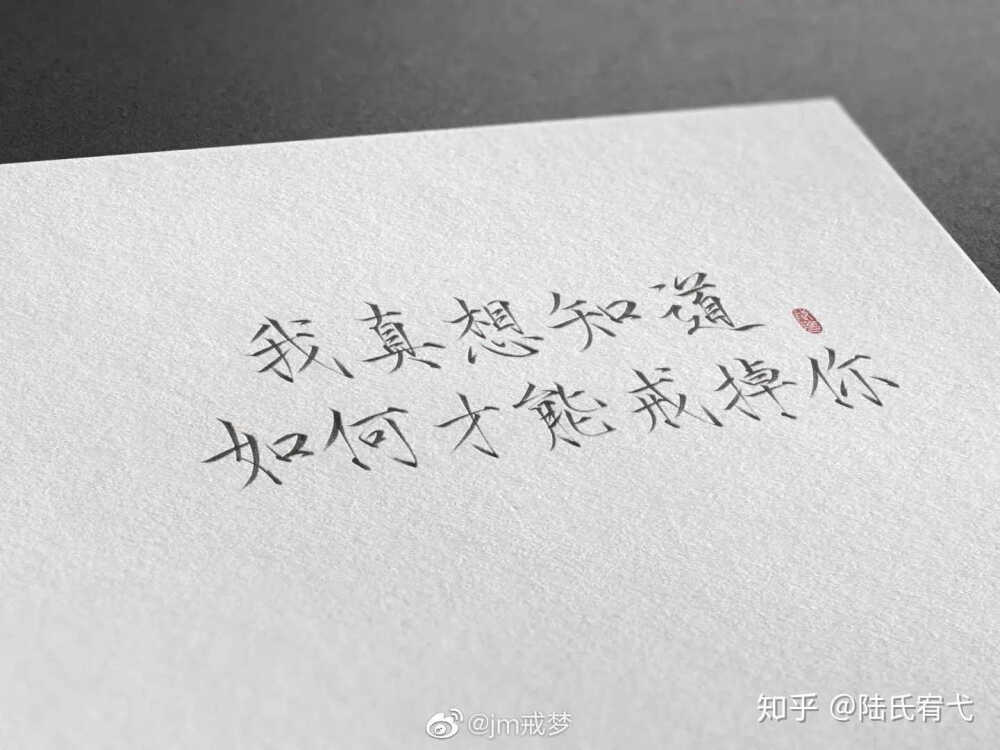 我真想知道
如何才能戒掉你
@jm戒梦
知乎 @陆氏宥弋